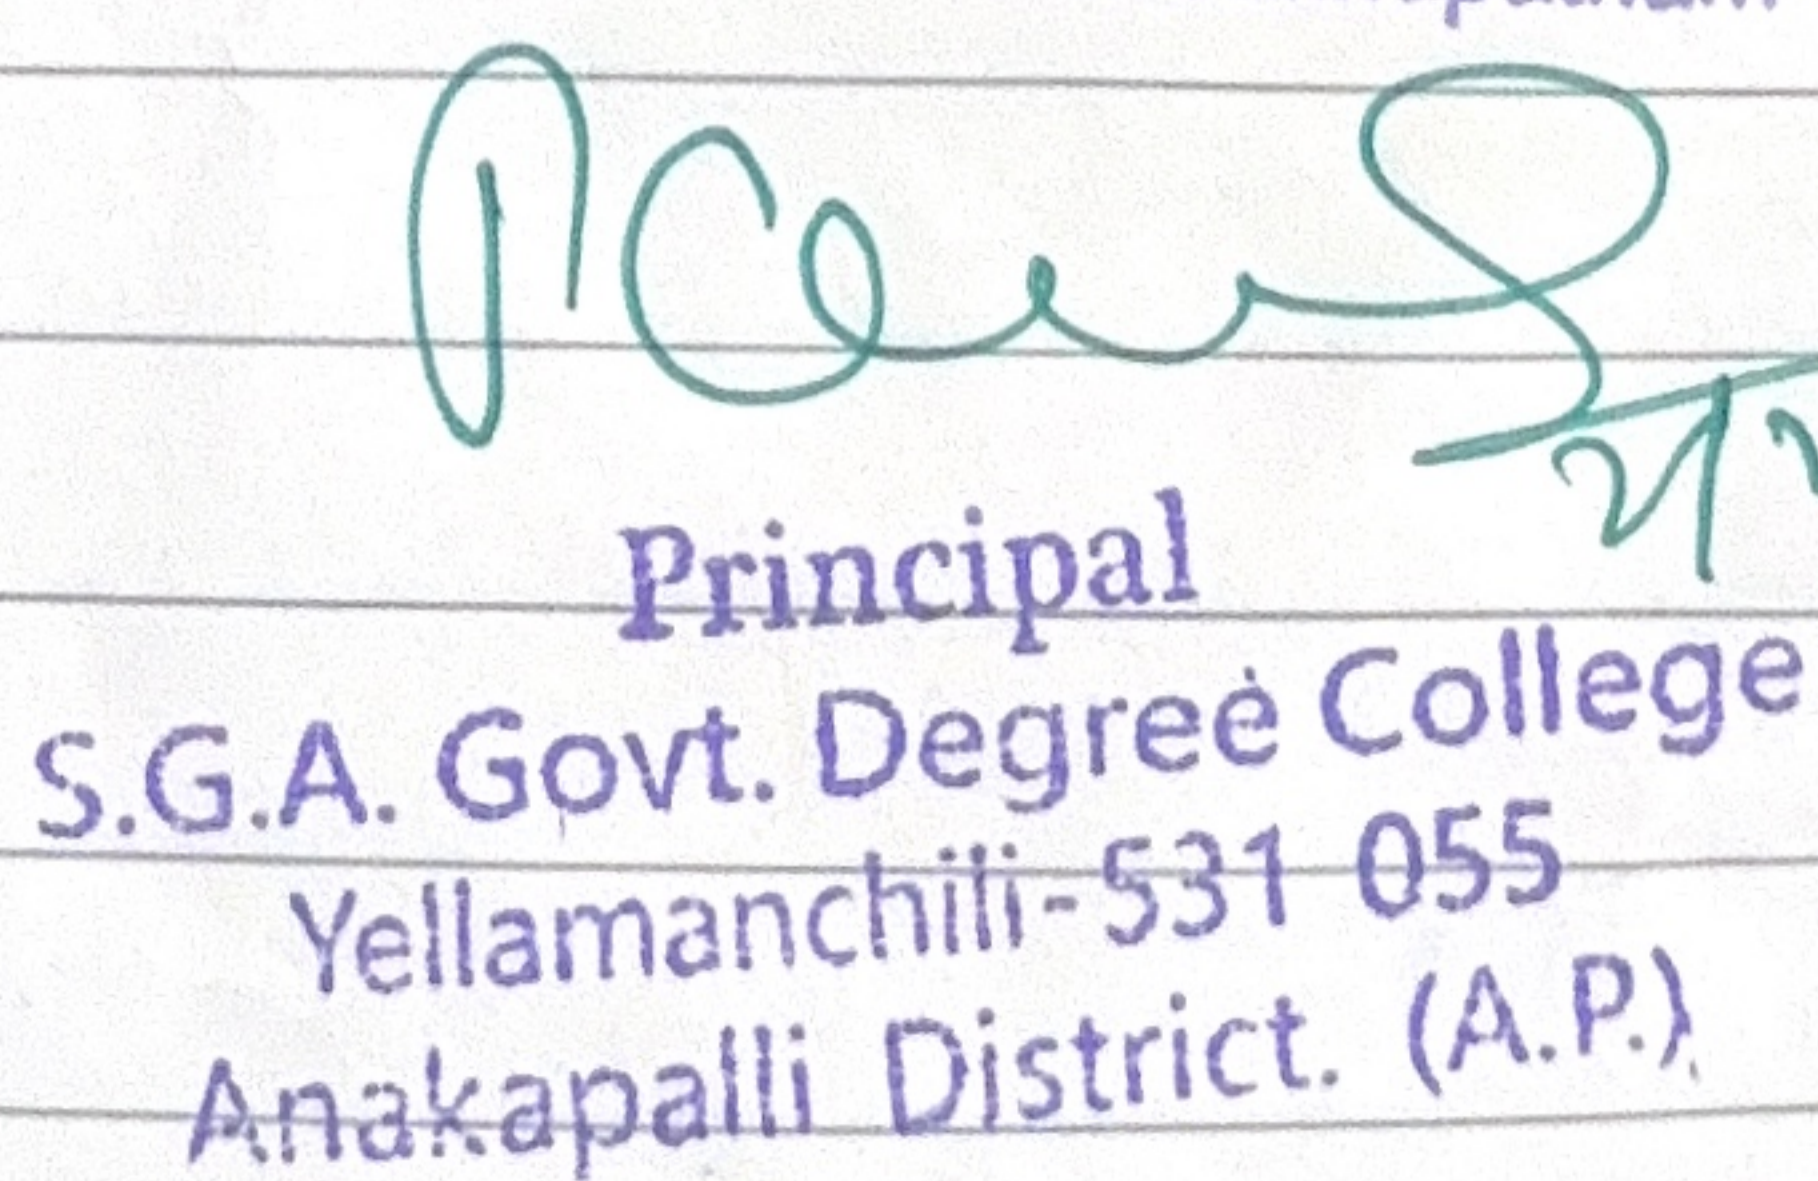 Principal
S.G.A. Govt. Degree College
Yellamanchili-531 055
Anakapalli District. (A.P.)